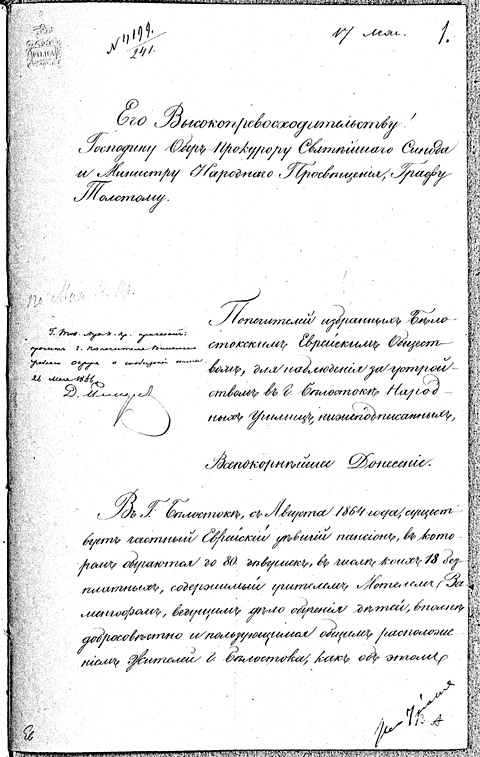 № 4199.
241.
17 мая.
1.
Его Высокопревосходительству!
Господину Оберъ-Прокурору Святѣйшаго Синода
и Министру Народнаго Просвѣщенія, Графу
Толстому.
Попечителей избранныхъ Бѣло-
стокскимъ Еврейскимъ Общест-
вомъ, для наблюденія за устрой-
ствомъ въ г. Бѣлостокѣ Народ-
ныхъ Училищъ, нижеподписанныхъ,
26 мая 1866
Всепокорнѣйшее Донесеніе.
Въ Г. Бѣлостокѣ, съ Августа 1864 года, сущест
вуетъ частный Еврейскій дѣвичій пансіонъ, въ кото
ромъ обучаются до 80 дѣвушекъ, въ числѣ коихъ 18 без
платныхъ, содержимый учителемъ Мотелемъ За
менгофомъ, ведущимъ дѣло обученія дѣтей, вполнѣ
добросовѣстно и пользующимся общимъ расположе
ніемъ жителей г. Бѣлостока, какъ объ этомъ